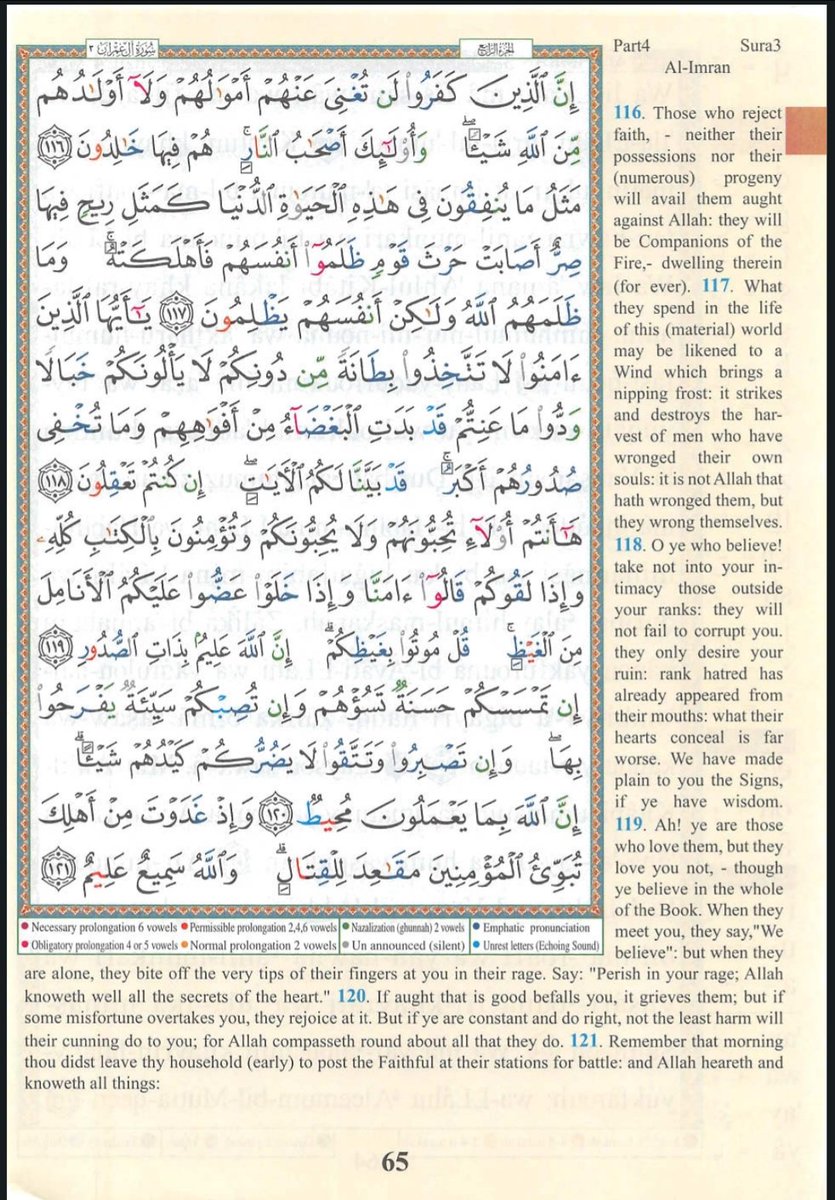 سُورَةُ آلِ عِمْرَانَ ٣
الجزء الرابع
إِنَّ ٱلَّذِينَ كَفَرُوا۟ لَن تُغْنِىَ عَنْهُمْ أَمْوَٰلُهُمْ وَلَآ أَوْلَٰدُهُم
مِّنَ ٱللَّهِ شَيْـًٔا ۖ وَأُو۟لَٰٓئِكَ أَصْحَٰبُ ٱلنَّارِ ۚ هُمْ فِيهَا خَٰلِدُونَ ١١٦
مَثَلُ مَا يُنفِقُونَ فِى هَٰذِهِ ٱلْحَيَوٰةِ ٱلدُّنْيَا كَمَثَلِ رِيحٍ فِيهَا
صِرٌّ أَصَابَتْ حَرْثَ قَوْمٍ ظَلَمُوٓا۟ أَنفُسَهُمْ فَأَهْلَكَتْهُ ۚ وَمَا
ظَلَمَهُمُ ٱللَّهُ وَلَٰكِنْ أَنفُسَهُمْ يَظْلِمُونَ ١١٧ يَٰٓأَيُّهَا ٱلَّذِينَ
ءَامَنُوا۟ لَا تَتَّخِذُوا۟ بِطَانَةً مِّن دُونِكُمْ لَا يَأْلُونَكُمْ خَبَالًا
وَدُّوا۟ مَا عَنِتُّمْ قَدْ بَدَتِ ٱلْبَغْضَآءُ مِنْ أَفْوَٰهِهِمْ وَمَا تُخْفِى
صُدُورُهُمْ أَكْبَرُ ۚ قَدْ بَيَّنَّا لَكُمُ ٱلْـَٔايَٰتِ ۖ إِن كُنتُمْ تَعْقِلُونَ ١١٨
هَٰٓأَنتُمْ أُو۟لَآءِ تُحِبُّونَهُمْ وَلَا يُحِبُّونَكُمْ وَتُؤْمِنُونَ بِٱلْكِتَٰبِ كُلِّهِۦ
وَإِذَا لَقُوكُمْ قَالُوٓا۟ ءَامَنَّا وَإِذَا خَلَوْا۟ عَضُّوا۟ عَلَيْكُمُ ٱلْأَنَامِلَ
مِنَ ٱلْغَيْظِ ۚ قُلْ مُوتُوا۟ بِغَيْظِكُمْ ۗ إِنَّ ٱللَّهَ عَلِيمٌۢ بِذَاتِ ٱلصُّدُورِ ١١٩
إِن تَمْسَسْكُمْ حَسَنَةٌ تَسُؤْهُمْ وَإِن تُصِبْكُمْ سَيِّئَةٌ يَفْرَحُوا۟
بِهَا ۖ وَإِن تَصْبِرُوا۟ وَتَتَّقُوا۟ لَا يَضُرُّكُمْ كَيْدُهُمْ شَيْـًٔا ۗ
إِنَّ ٱللَّهَ بِمَا يَعْمَلُونَ مُحِيطٌ ١٢٠ وَإِذْ غَدَوْتَ مِنْ أَهْلِكَ
تُبَوِّئُ ٱلْمُؤْمِنِينَ مَقَٰعِدَ لِلْقِتَالِ ۗ وَٱللَّهُ سَمِيعٌ عَلِيمٌ ١٢١
Necessary prolongation 6 vowels Permissible prolongation 2,4,6 vowels Nazalization (ghunnah) 2 vowels Emphatic pronunciation
Obligatory prolongation 4 or 5 vowels Normal prolongation 2 vowels Un announced (silent) Unrest letters (Echoing Sound)
Part4 Sura3
Al-Imran
116. Those who reject
faith, - neither their
possessions nor their
(numerous) progeny
will avail them aught
against Allah: they will
be Companions of the
Fire,- dwelling therein
(for ever). 117. What
they spend in the life
of this (material) world
may be likened to a
Wind which brings a
nipping frost: it strikes
and destroys the har-
vest of men who have
wronged their own
souls: it is not Allah that
hath wronged them, but
they wrong themselves.
118. O ye who believe!
take not into your in-
timacy those outside
your ranks: they will
not fail to corrupt you.
they only desire your
ruin: rank hatred has
already appeared from
their mouths: what their
hearts conceal is far
worse. We have made
plain to you the Signs,
if ye have wisdom.
119. Ah! ye are those
who love them, but they
love you not, - though
ye believe in the whole
of the Book. When they
meet you, they say,"We
believe": but when they
are alone, they bite off the very tips of their fingers at you in their rage. Say: "Perish in your rage; Allah
knoweth well all the secrets of the heart." 120. If aught that is good befalls you, it grieves them; but if
some misfortune overtakes you, they rejoice at it. But if ye are constant and do right, not the least harm will
their cunning do to you; for Allah compasseth round about all that they do. 121. Remember that morning
thou didst leave thy household (early) to post the Faithful at their stations for battle: and Allah heareth and
knoweth all things:
65